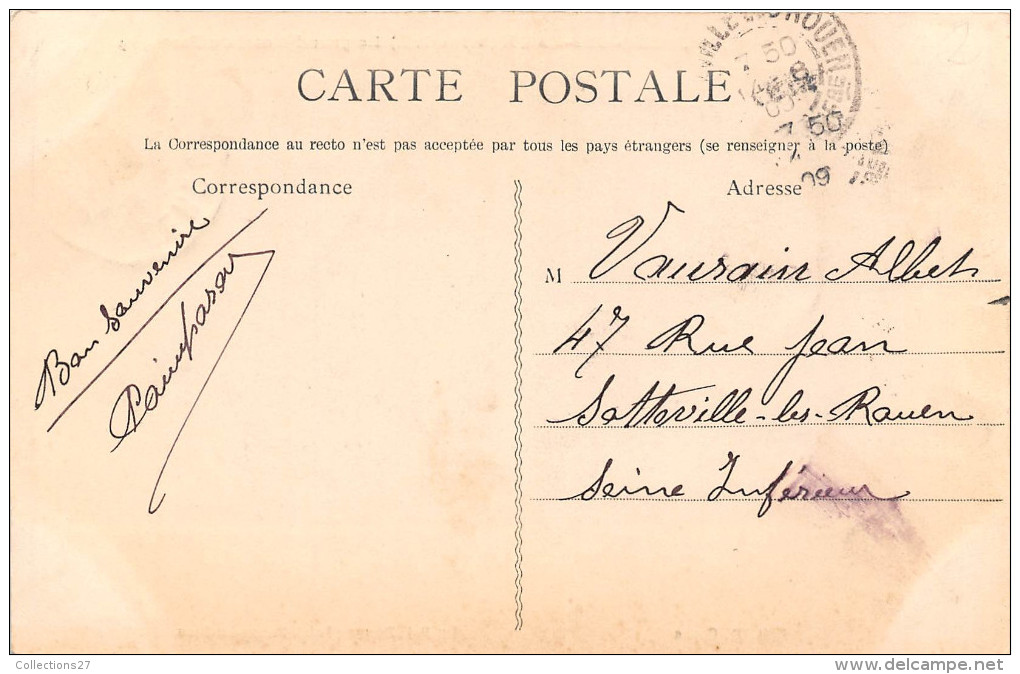 CARTE POSTALE
La Correspondance au recto n'est pas acceptée par tous les pays étrangers (se renseigner à la poste)
Correspondance
Bon Souvenire
Adresse
M Vaurain Albet
47 Rue Jean
Sotteville-les-Rouen
Seine Inférieur
7 50
7 50
09
Collections27
delcampe.net